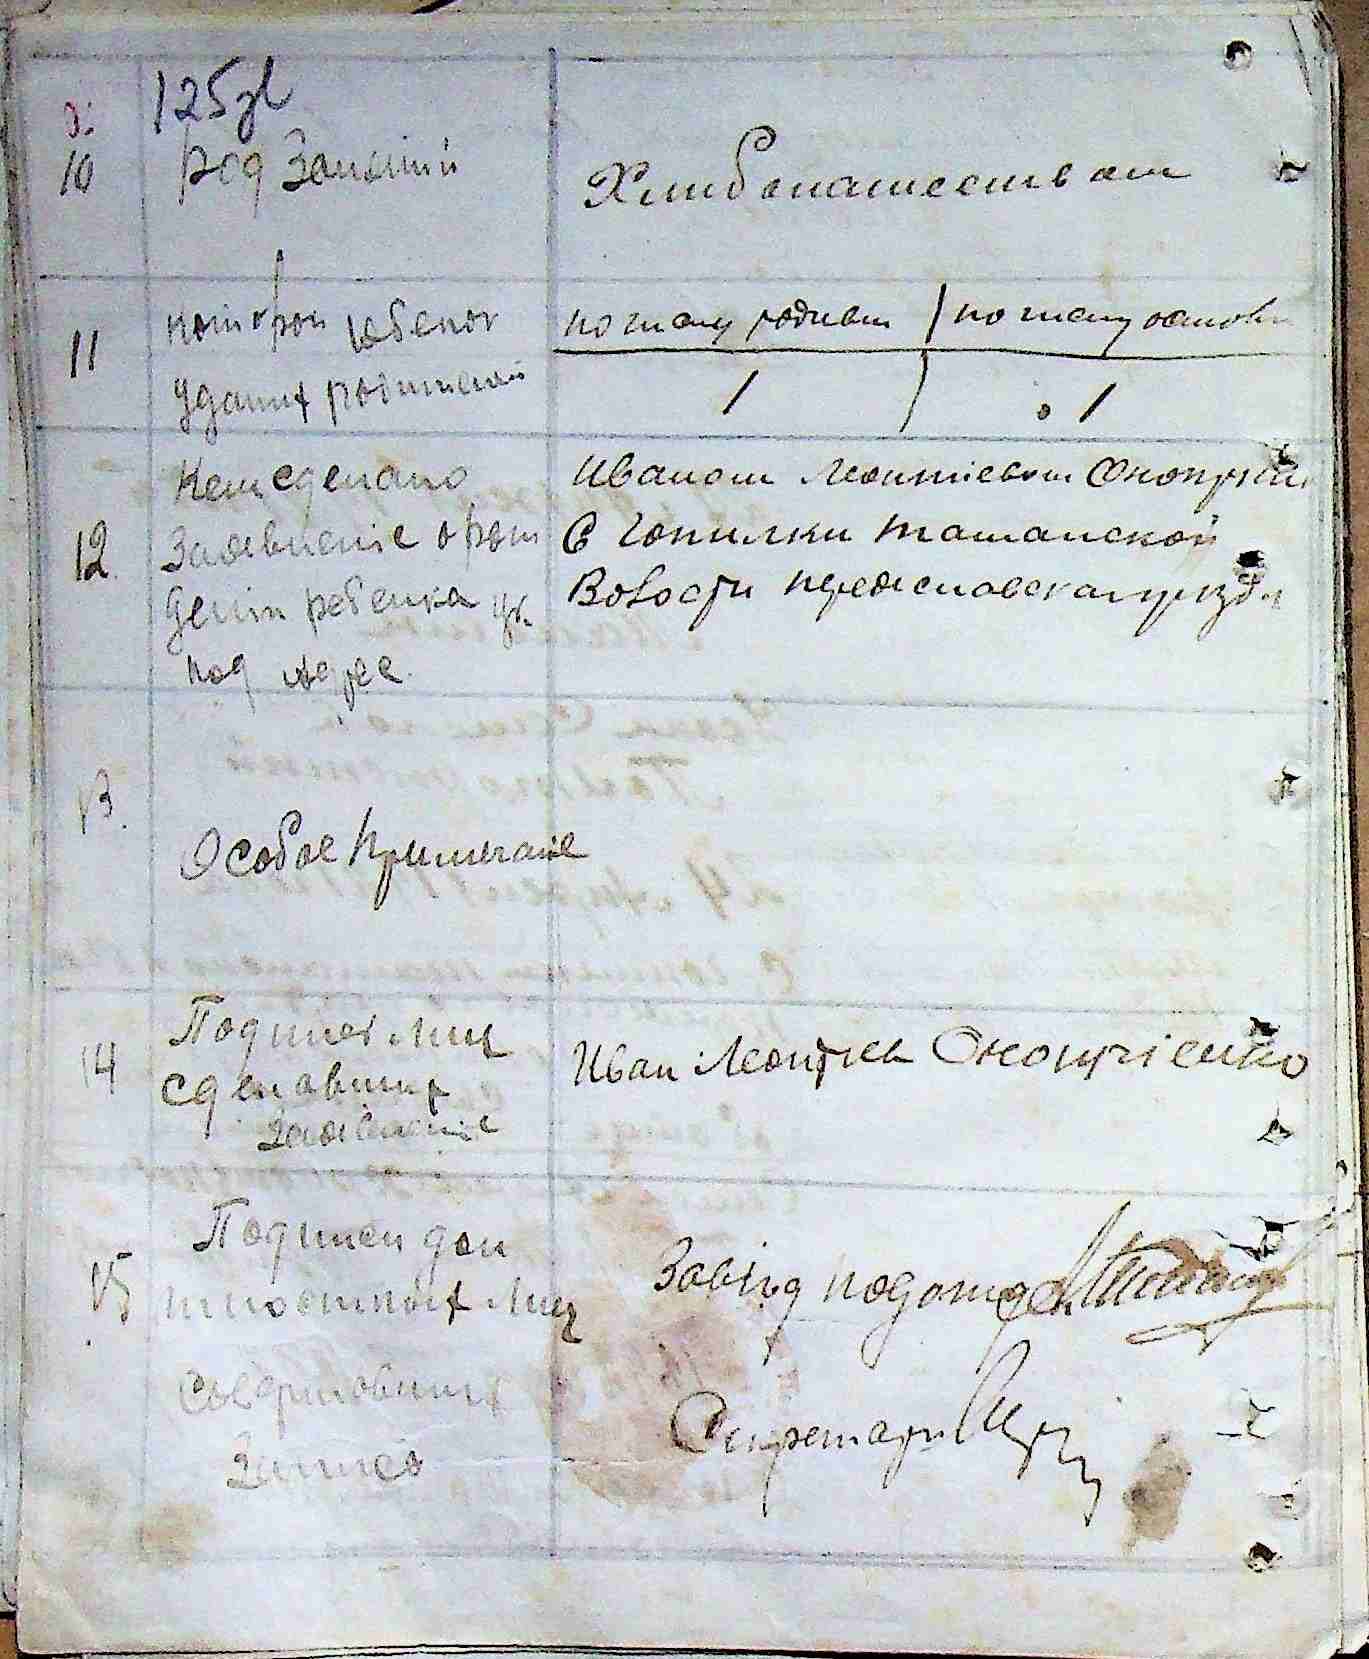 125зв
10 род Занятий
Хлибопашеством
11 которой ребенок
у даних родителей
по числу родивш по числу оставш
1 1
12. Кем сделано
Заявление о рож
дении ребенка ук.
под Адрес.
Иваном Леонтіевом Онопрієн
С Чопилки Ташанской
Волости Переяславскаг уизда
13. Особое Примечаніе
14 Подписі Лиц
сделавших
Заявленіе
Иван Леонтієв Онопрієнко
15 Подписи дол
жностных Лиц
совершовших
Запись
Завід подотд
Секретарь